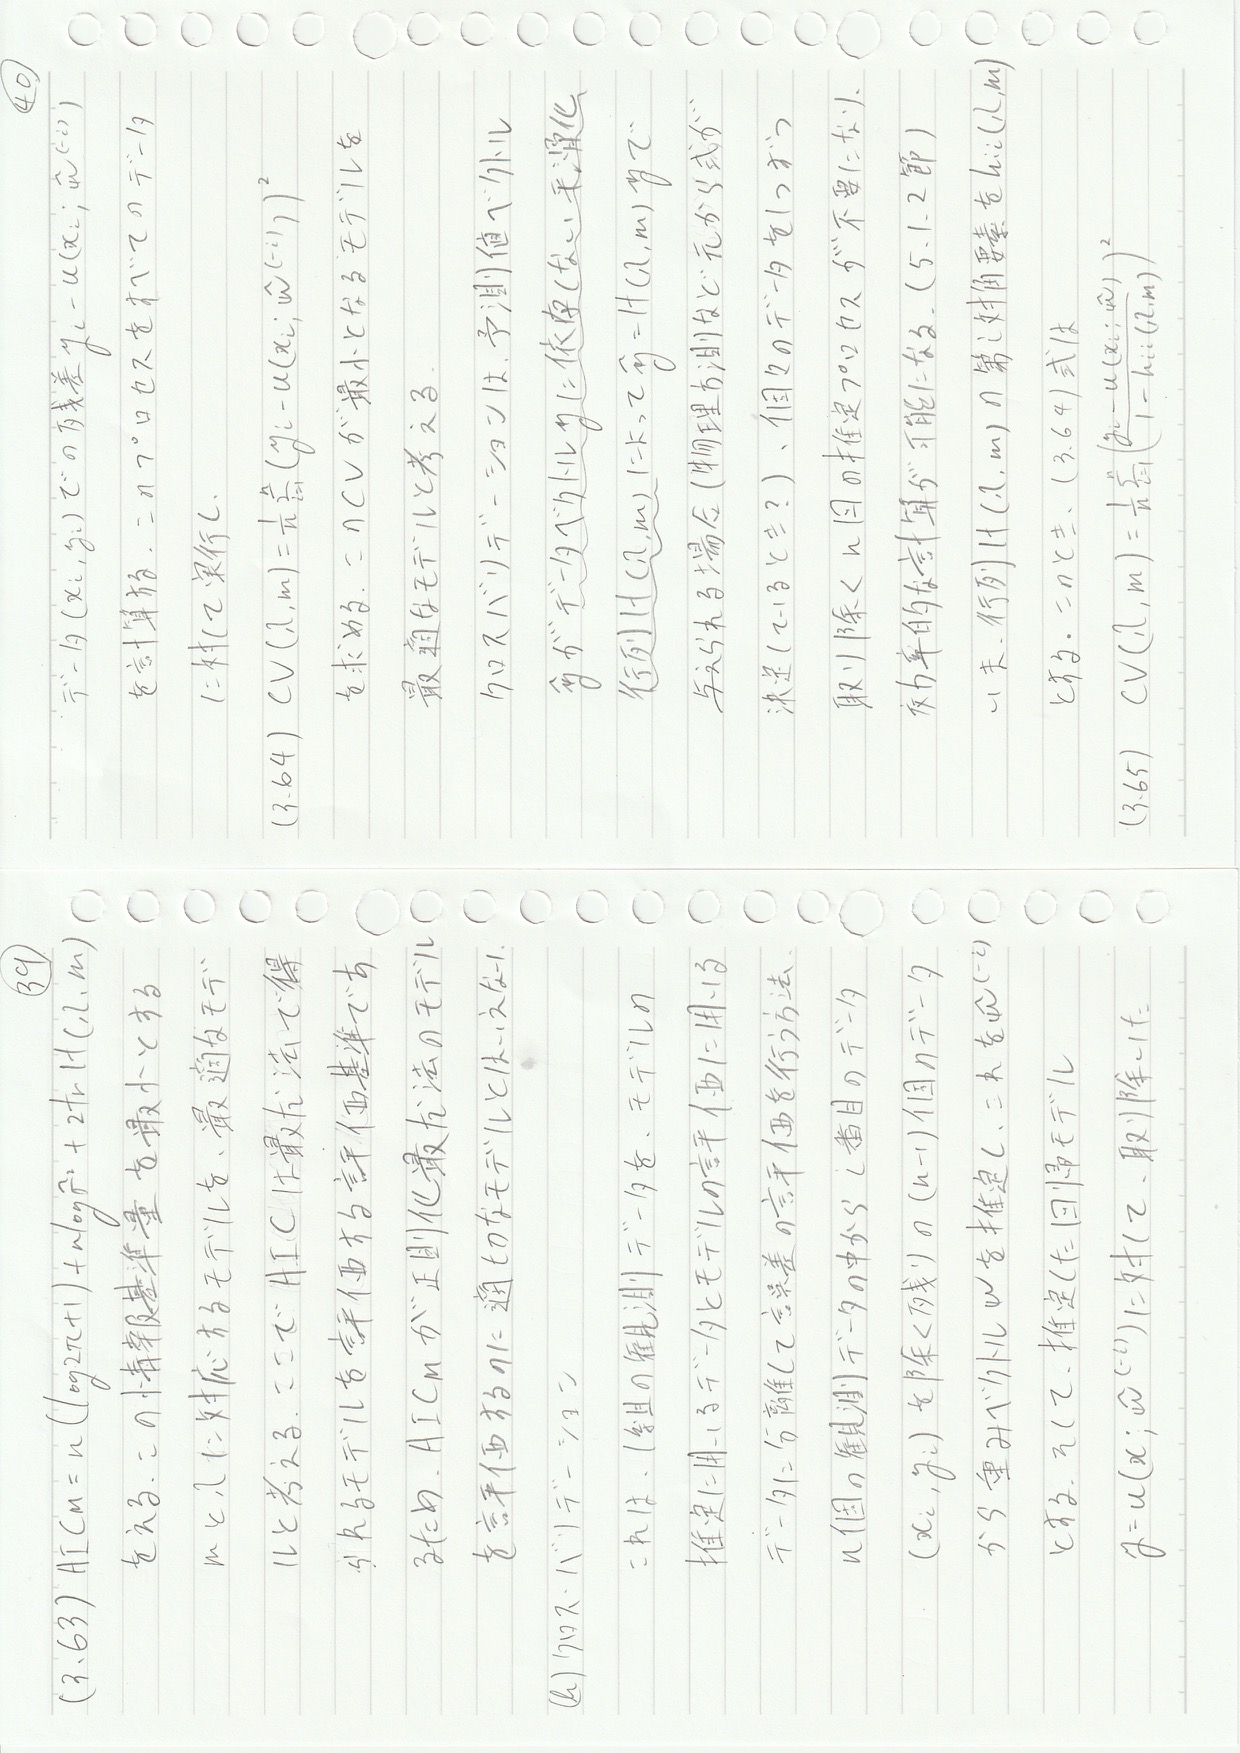 39
(3.63) AICm = n(log2π+1)+nlogσ̂²+2trH(λ,m)
をえる。この情報基準量を最小とする
mとλに対応するモデルを、最適なモデ
ルと考える。ここでAICは最尤法で得
られるモデルを評価する評価基準であ
るため、AICmが正則化最尤法のモデル
を評価するのに適切なモデルとはいえない。
(h)クロス・バリデーション
これは、1組の観測データを、モデルの
推定に用いるデータとモデルの評価に用いる
データに分離して誤差の評価を行う方法。
n個の観測データの中からi番目のデータ
(xi, yi)を除く残りの(n-1)個のデータ
から重みベクトルwを推定し、これをŵ(-i)
とする。そして、推定した回帰モデル
y=u(x; ŵ(-i))に対して、取り除いた
40
データ(xi, yi)での残差yi-u(xi; ŵ(-i))
を計算する。このプロセスをすべてのデータ
に対して実行し、
(3.64) CV(λ,m)=1/n Σ[i=1→n](yi-u(xi; ŵ(-i)))²
を求める。このCVが最小となるモデルを
最適なモデルと考える。
クロスバリデーションは、予測値ベクトル
ŷがデータベクトルyに依存しない平滑化
行列H(λ,m)によってŷ=H(λ,m)yで
与えられる場合(物理方則など元から式が
決定しているとき?)、個々のデータを1つずつ
取り除くn回の推定プロセスが不要になり、
効率的な計算が可能になる。(5.1.2節)
いま、行列H(λ,m)の第i対角要素をhii(λ,m)
とする。このとき、(3.64)式は
(3.65) CV(λ,m)=1/n Σ[i=1→n]((yi-u(xi; ŵ))/(1-hii(λ,m)))²